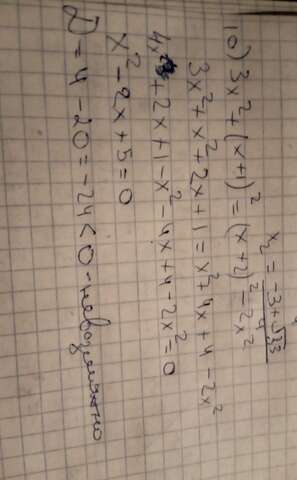 x₂ = -3+√33 / 4
10) 3x² + (x+1)² = (x+2)² - 2x²
3x² + x² + 2x + 1 = x² + 4x + 4 - 2x²
4x² + 2x + 1 - x² - 4x + 4 - 2x² = 0
x² - 2x + 5 = 0
D = 4 - 20 = -24 < 0 - невозможно